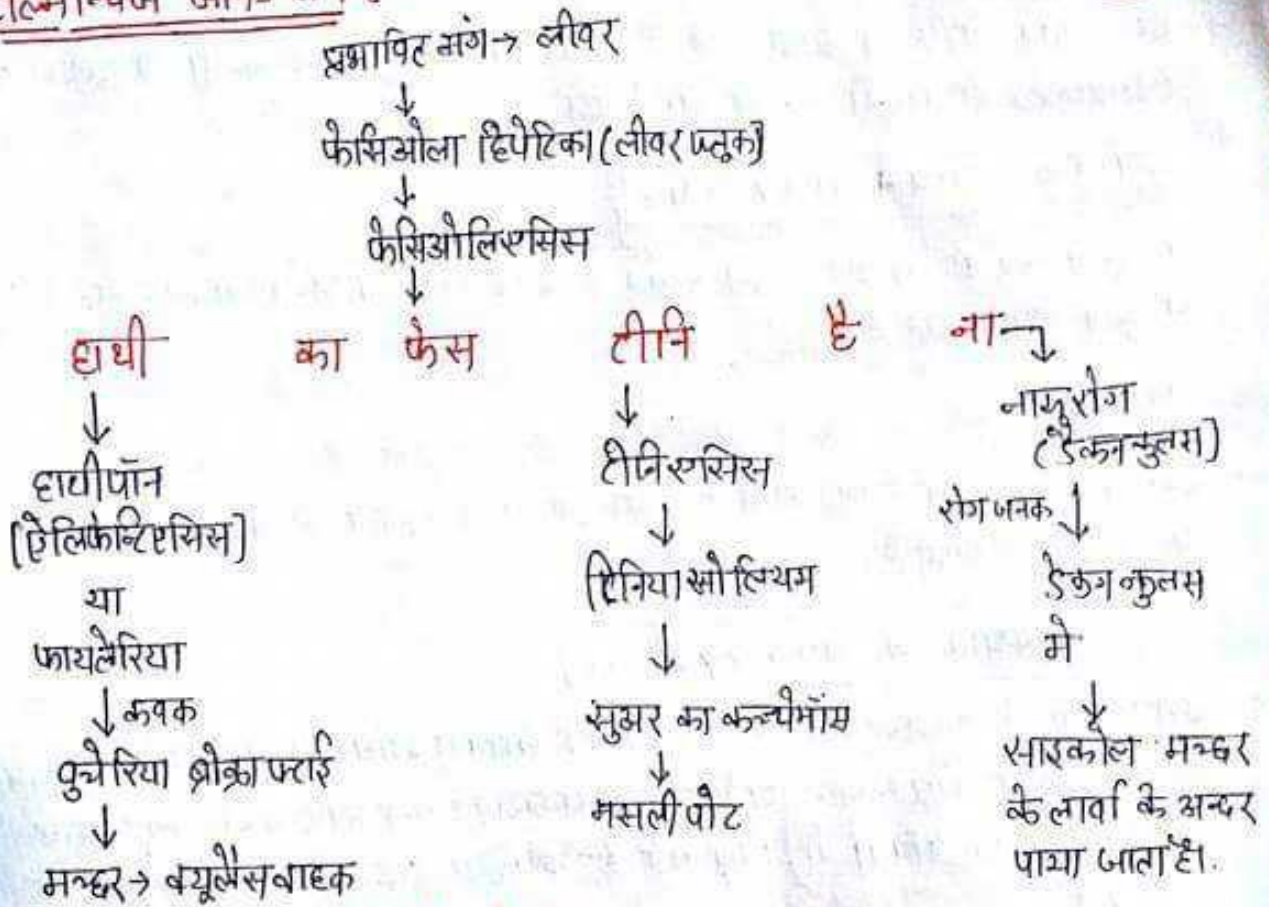 प्रभावित अंग → लीवर
↓
फेसिओला हिपेटिका (लीवर फ्लुक)
↓
फेसिओलिएसिस
↓
हाथी का फेस टीनि है ना
↓
हाथीपॉन
[ऐलिफेन्टिएसिस]
या
फायलेरिया
↓ कवक
वुचेरिया ब्रोक्राफ्टाई
↓
मच्छर → क्यूलैस वाहक
↓
टीनिएसिस
↓
टिनिया सोलियम
↓
सुअर का कच्चे माँस
↓
मसली पोट
↓
नारू रोग
(डेकनकुलस)
रोग जनक ↓
डेकनकुलस
मे
↓
साइकोल मच्छर
के लार्वा के अन्दर
पाया जाता है।